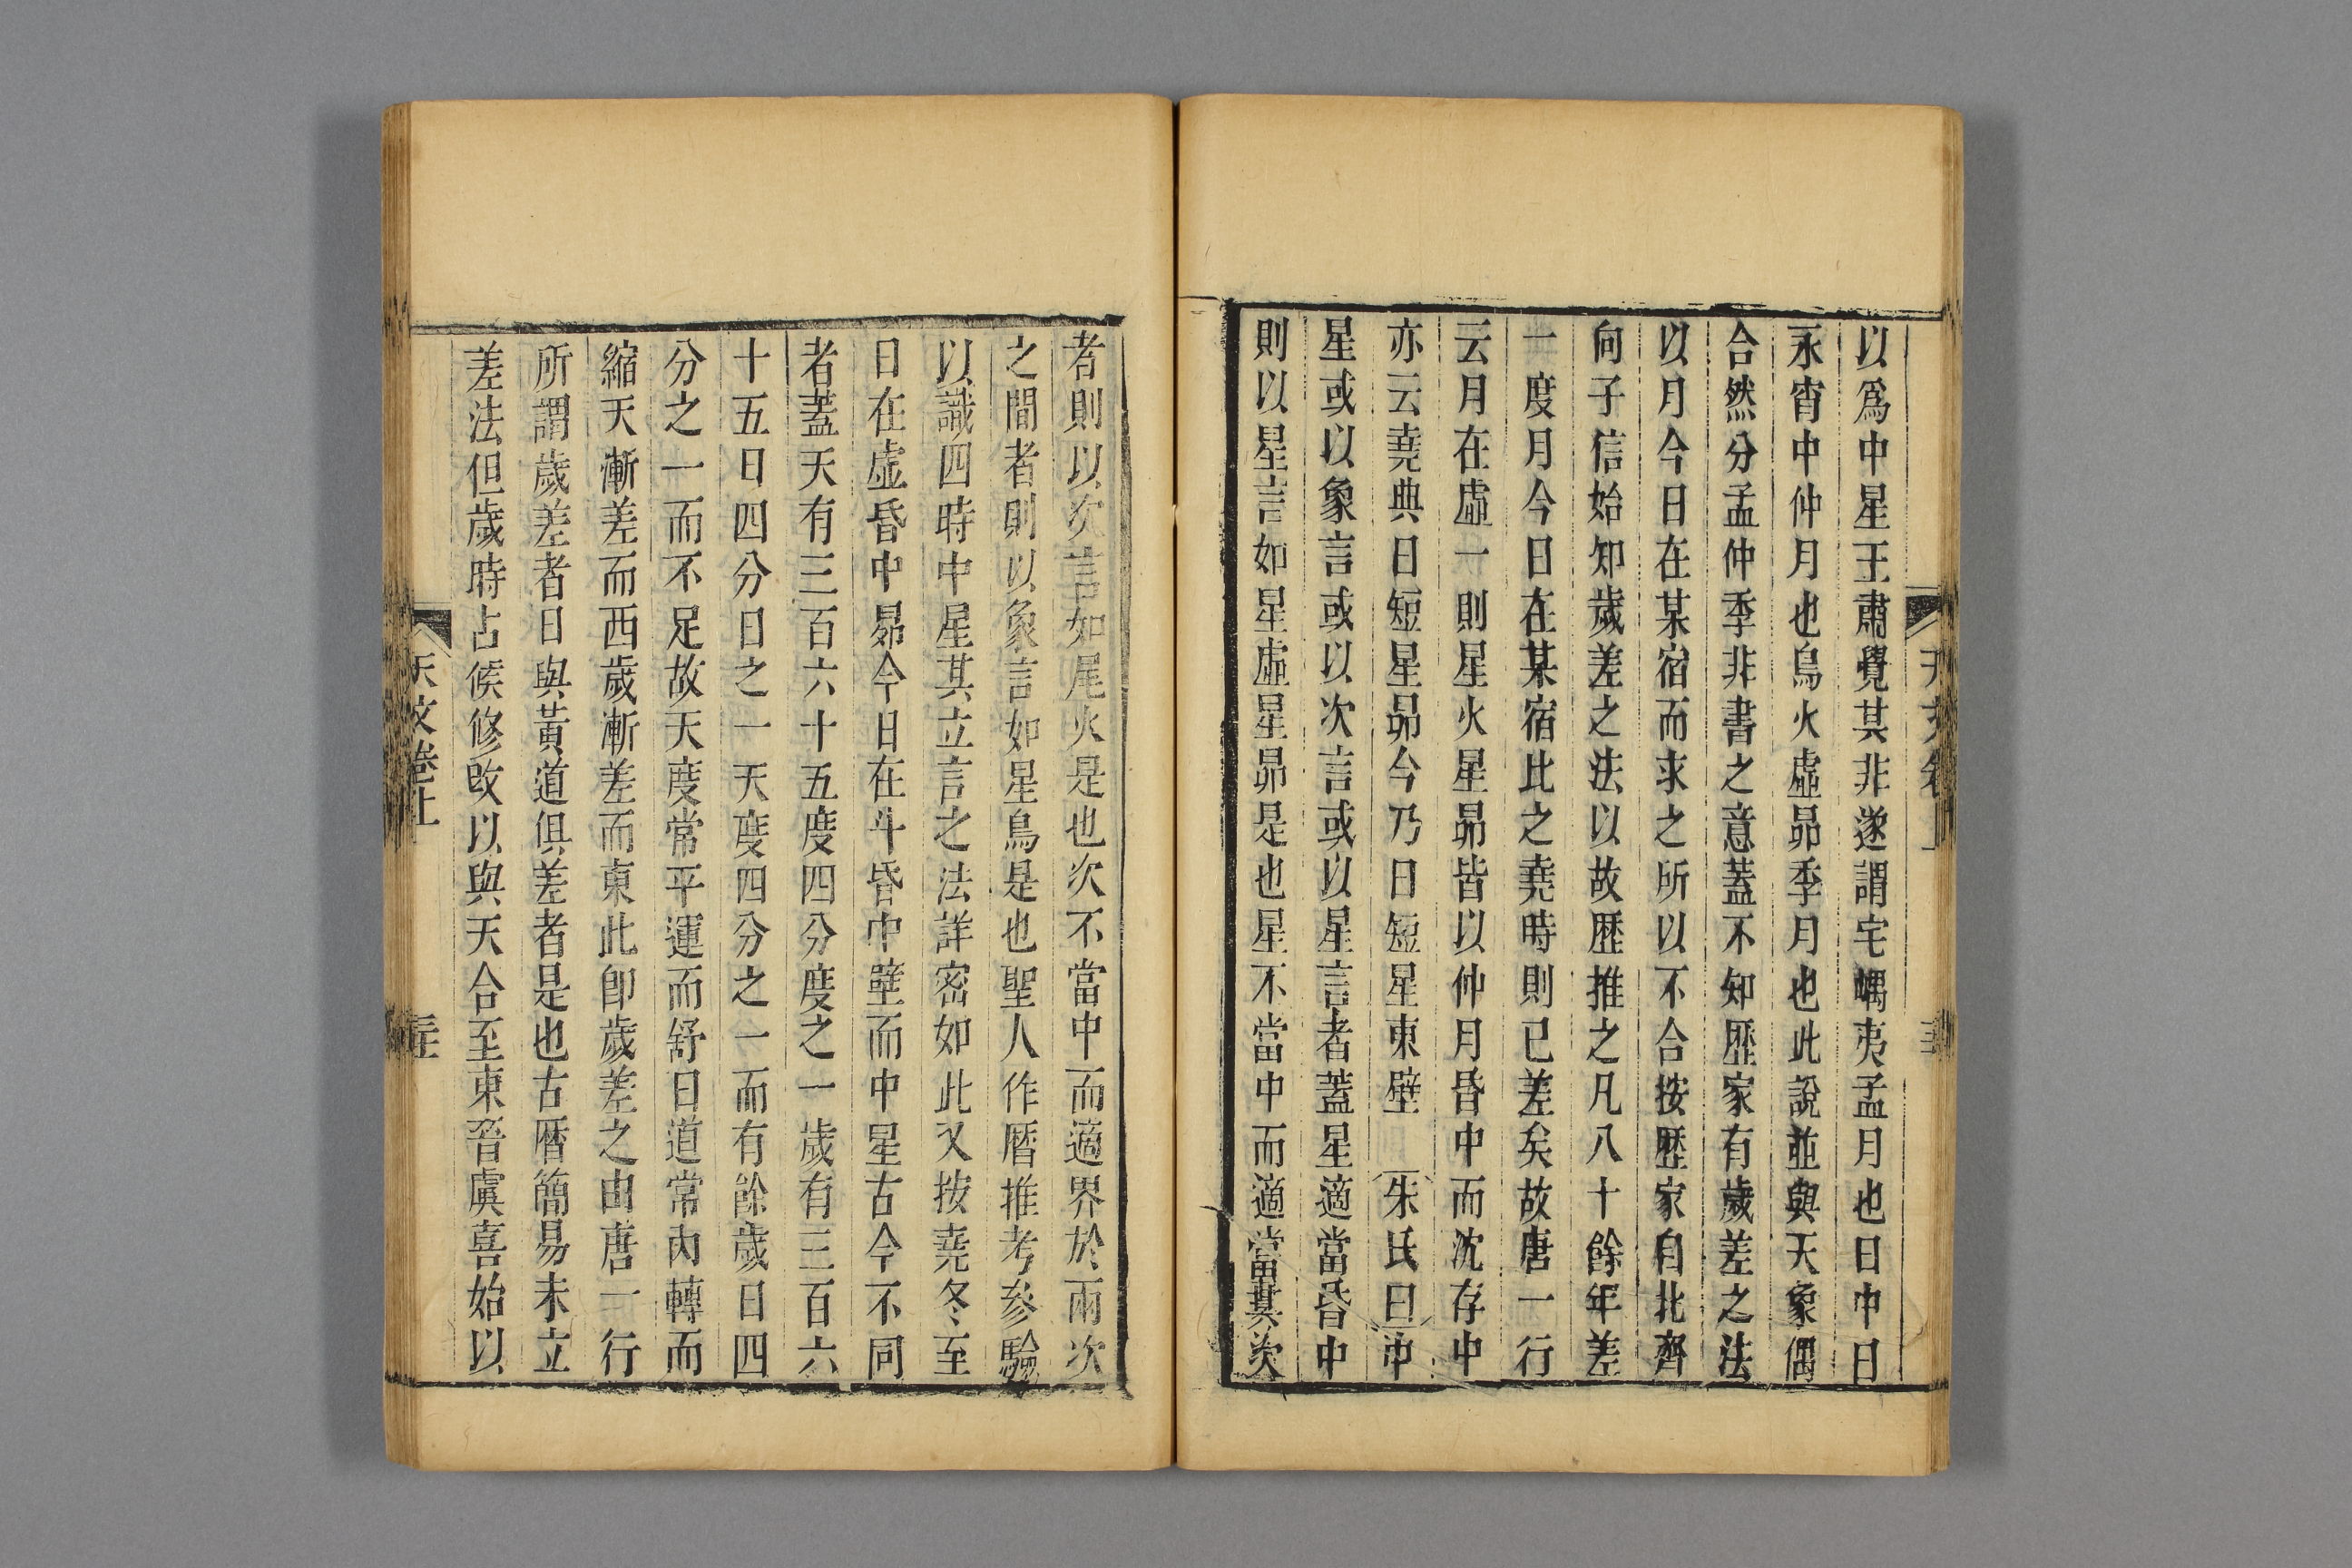 以爲中星王肅覺其非遂謂宅嵎夷孟月也日中日
永宵中仲月也鳥火虛昴季月也此說並與天象偶
合然分孟仲季非書之意蓋不知歷家有歲差之法
以月令日在某宿而求之所以不合按歷家自北齊
向子信始知歲差之法以故歷推之凡八十餘年差
一度月令日在某宿比之堯時則已差矣故唐一行
云月在虛一則星火星昴皆以仲月昏中而沈存中
亦云堯典日短星昴今乃日短星東壁 朱氏曰中
星或以象言或以次言或以星言者蓋星適當昏中
則以星言如星虛星昴是也星不當中而適當其次
者則以次言如尾火是也次不當中而適界於兩次
之間者則以象言如星鳥是也聖人作曆推考參驗
以識四時中星其立言之法詳密如此又按堯冬至
日在虛昏中昴今日在斗昏中壁而中星古今不同
者蓋天有三百六十五度四分度之一歲有三百六
十五日四分日之一天度四分之一而有餘歲日四
分之一而不足故天度常平運而舒日道常內轉而
縮天漸差而西歲漸差而東此卽歲差之由唐一行
所謂歲差者日與黃道俱差者是也古曆簡易未立
差法但歲時占候修改以與天合至東晉虞喜始以
天文卷上